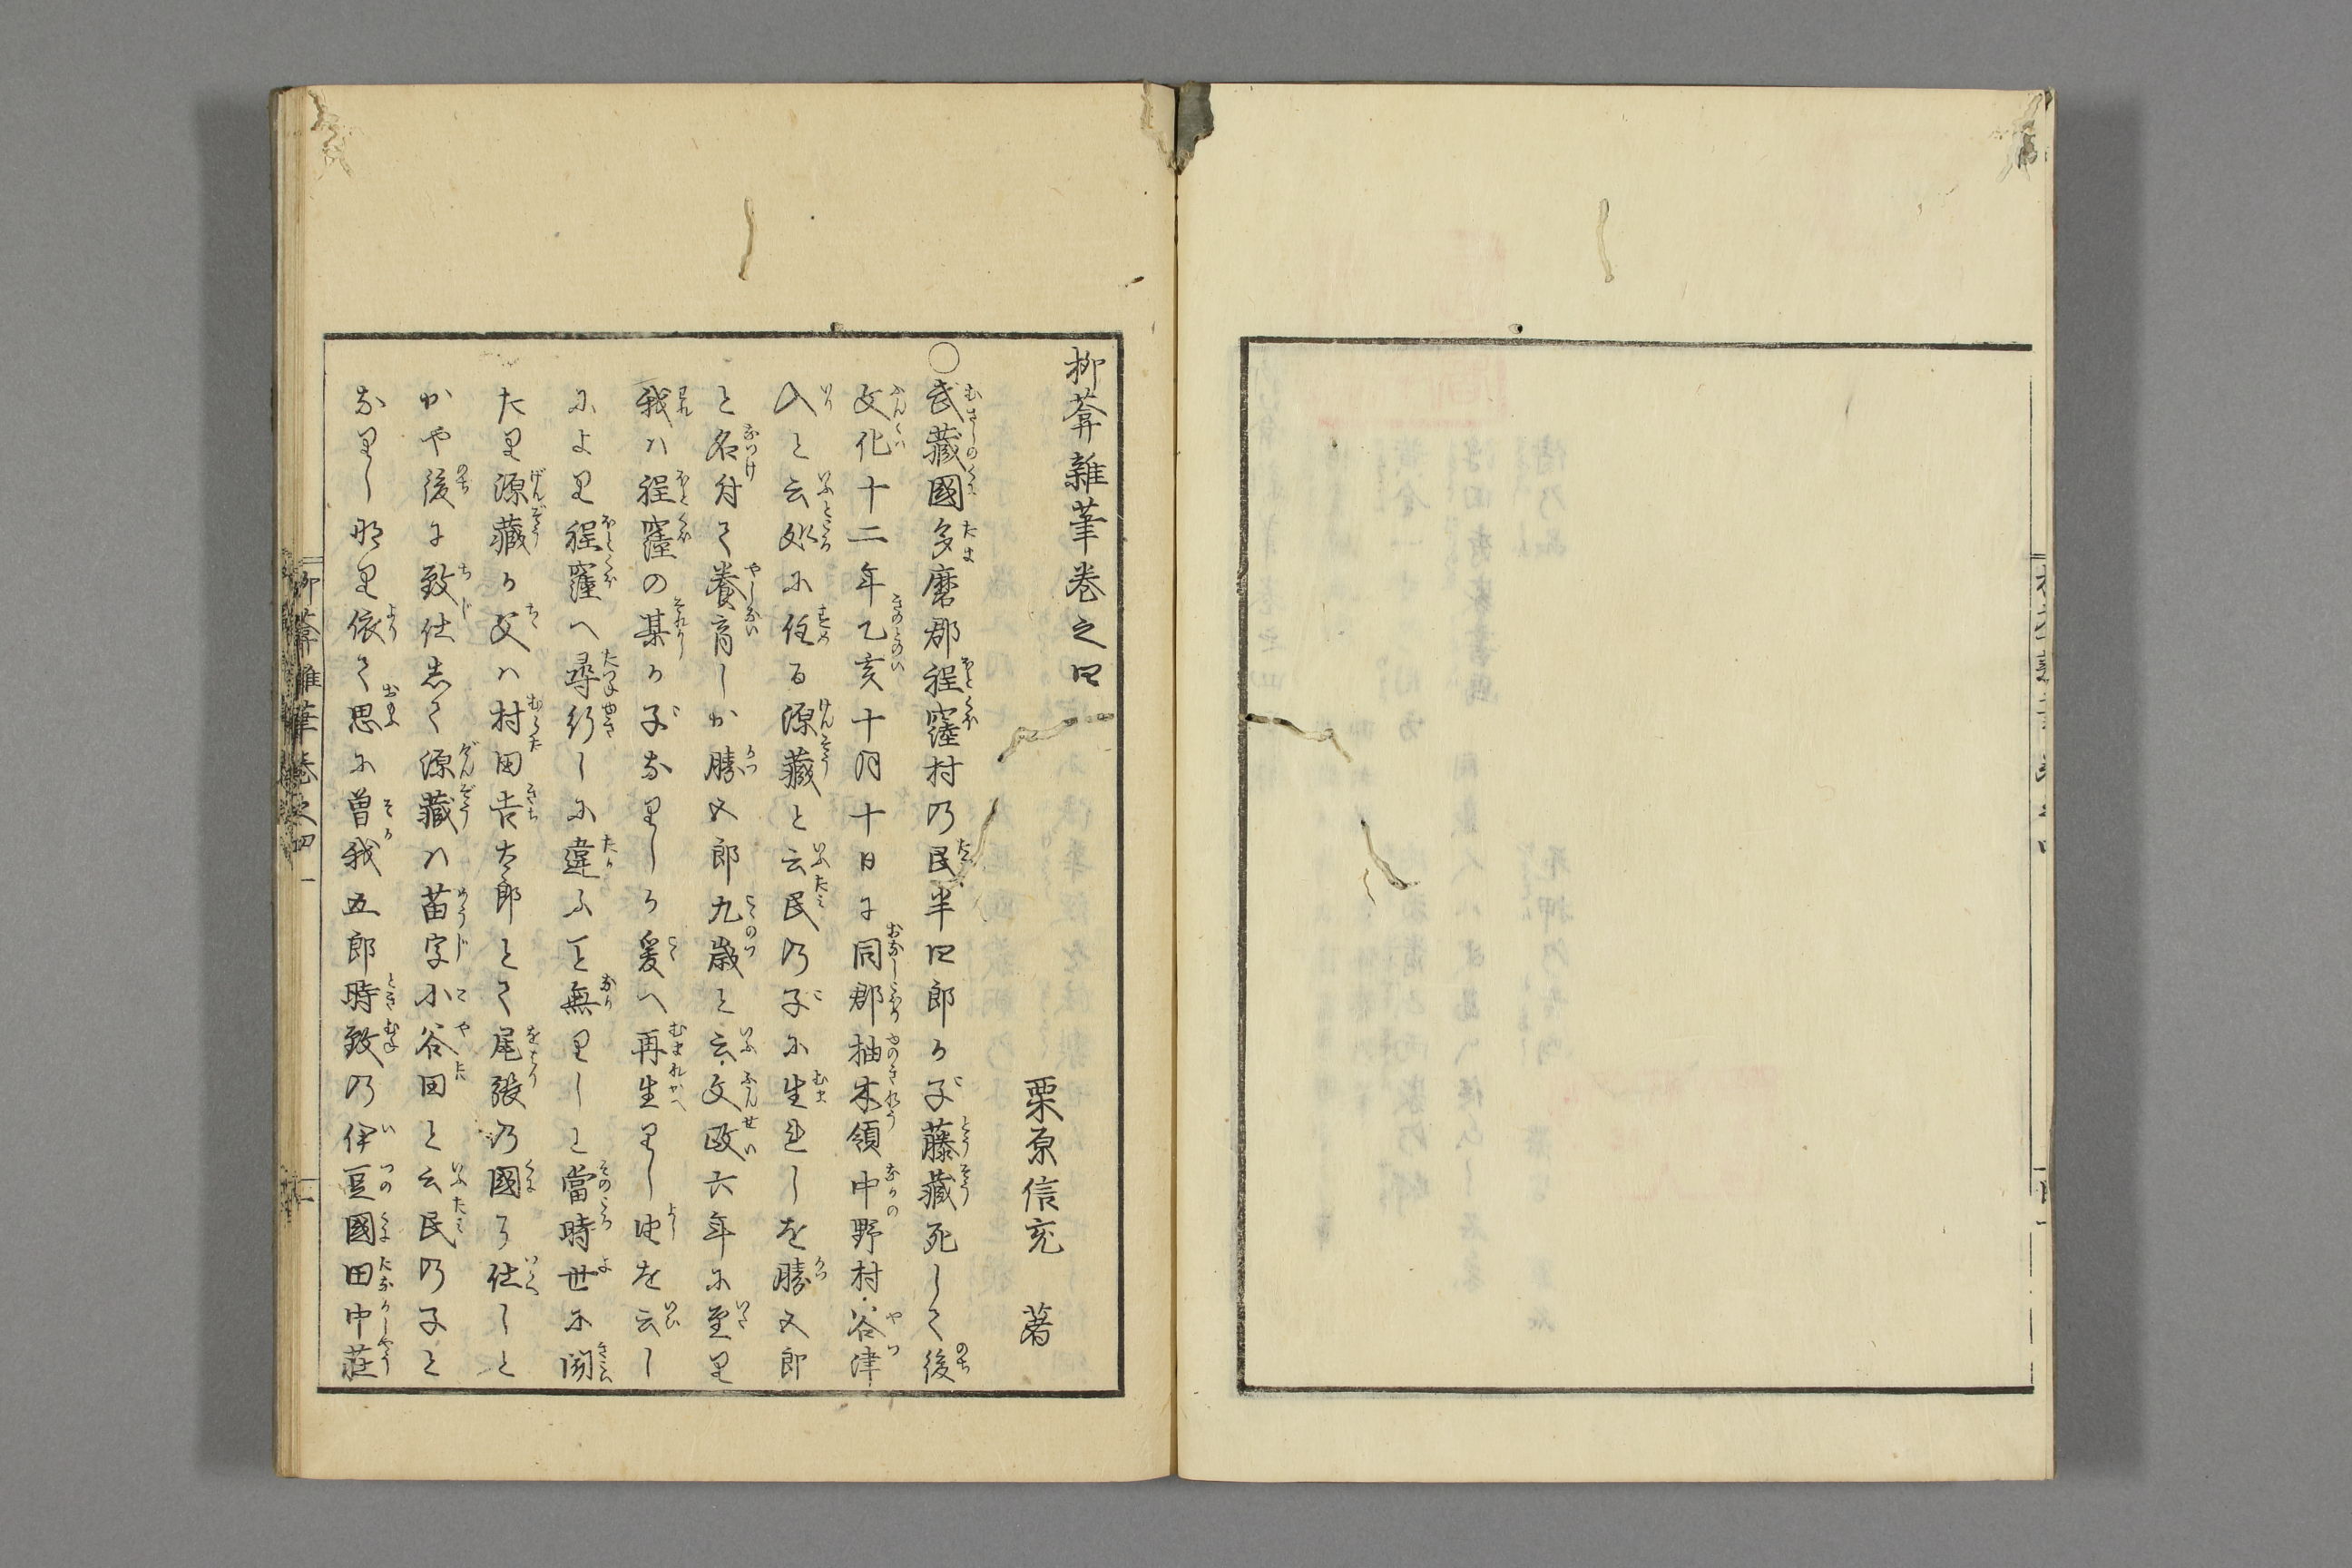 柳葊雜筆巻之四
栗原信充 著
○武藏國多磨郡程窪村乃民半四郎か子藤藏死して後
文化十二年乙亥十月十日に同郡柚木領中野村谷津
入と云処に住る源藏と云民乃子に生れしを勝五郎
と名付て養育しか勝五郎九歳と云文政六年に至り
我ハ程窪の某か子なりしか爰へ再生りし由を云し
によつて程窪へ尋行しに違ふこと無りしと當時世に聞
たり源藏か父ハ村田吉太郎とて尾張乃國に仕しと
かや後に致仕して源藏ハ苗字小谷田と云民乃子と
なりし那り依て思に曽我五郎時致乃伊豆國田中莊
柳葊雜筆巻之四 一